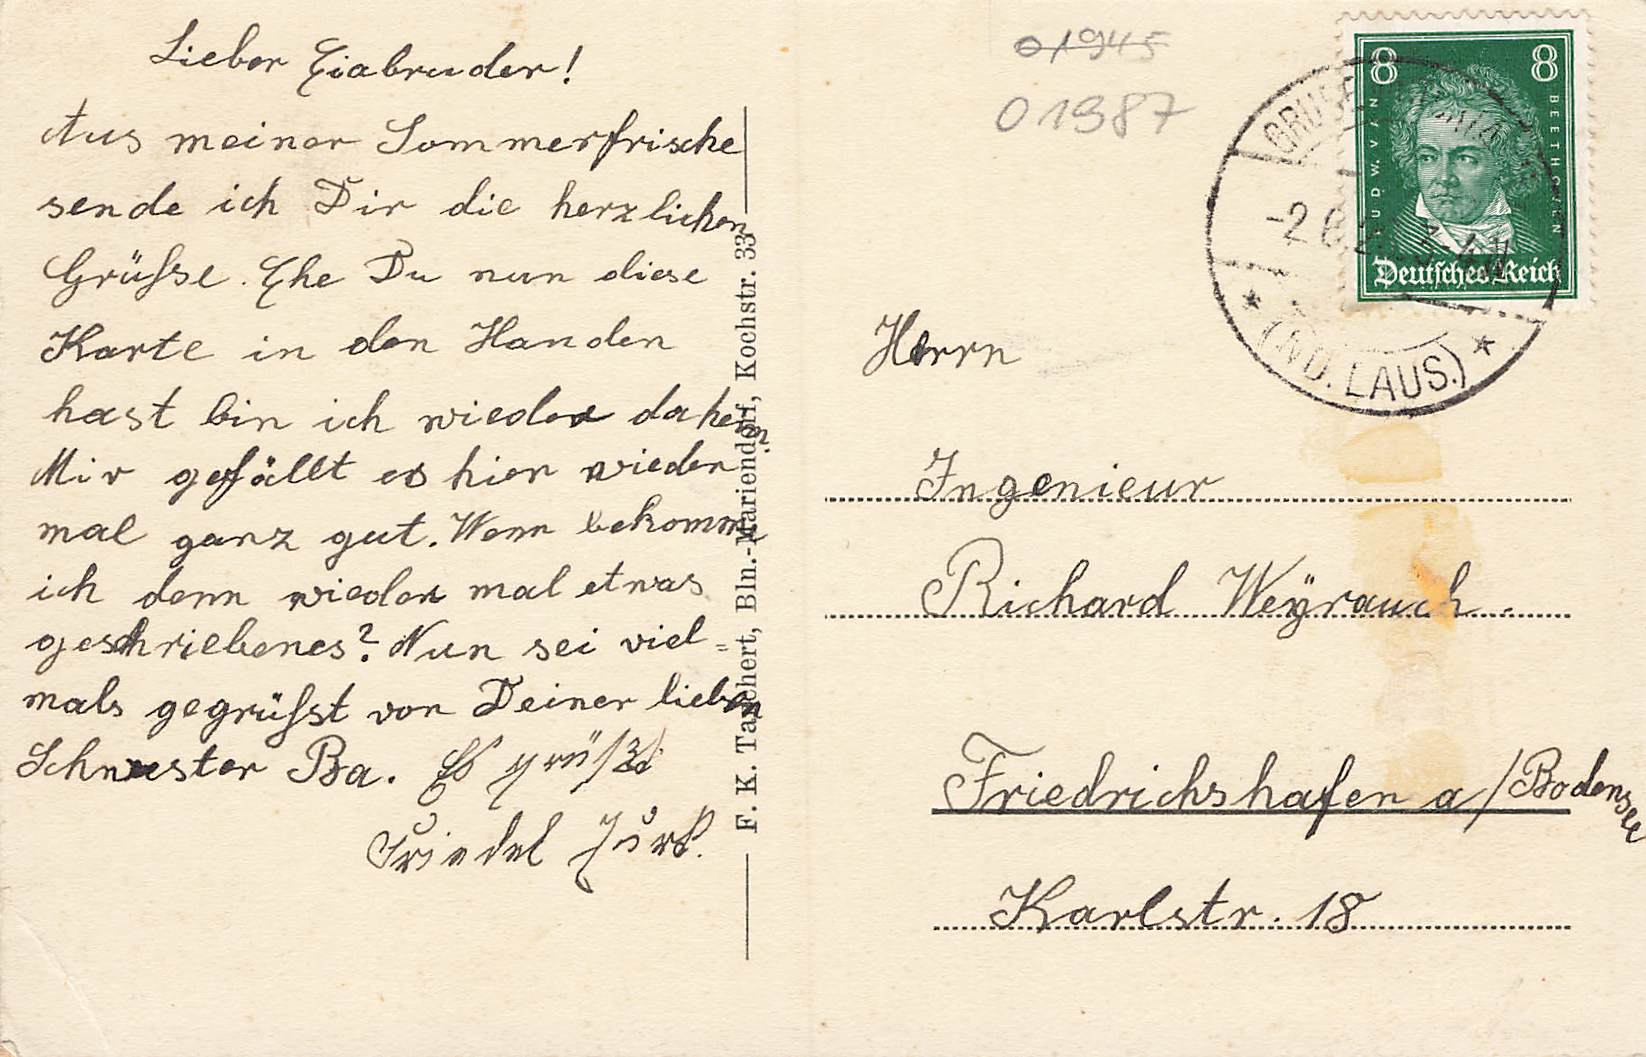 Lieber Eiabruder!
Aus meiner Sommerfrische
sende ich Dir die herzlichen
Grüße. Ehe Du nun diese
Karte in den Handen
hast bin ich wieder daheim.
Mir gefällt es hier wieder
mal ganz gut. Wenn bekomme
ich denn wieder mal etwas
geschriebenes? Nun sei viel=
mals gegrüßt von Deiner lieben
Schwester Ba. Es grüßt
Friedel
F. K. Taschert, Bln.-Mariendorf, Kochstr. 33
01945
01987
8 8
LUDW. VAN BEETHOVEN
Deutsches Reich
(ND. LAUS.)
Herrn
Ingenieur
Richard Weyrauch.
Friedrichshafen a/Bodensee
Karlstr. 18